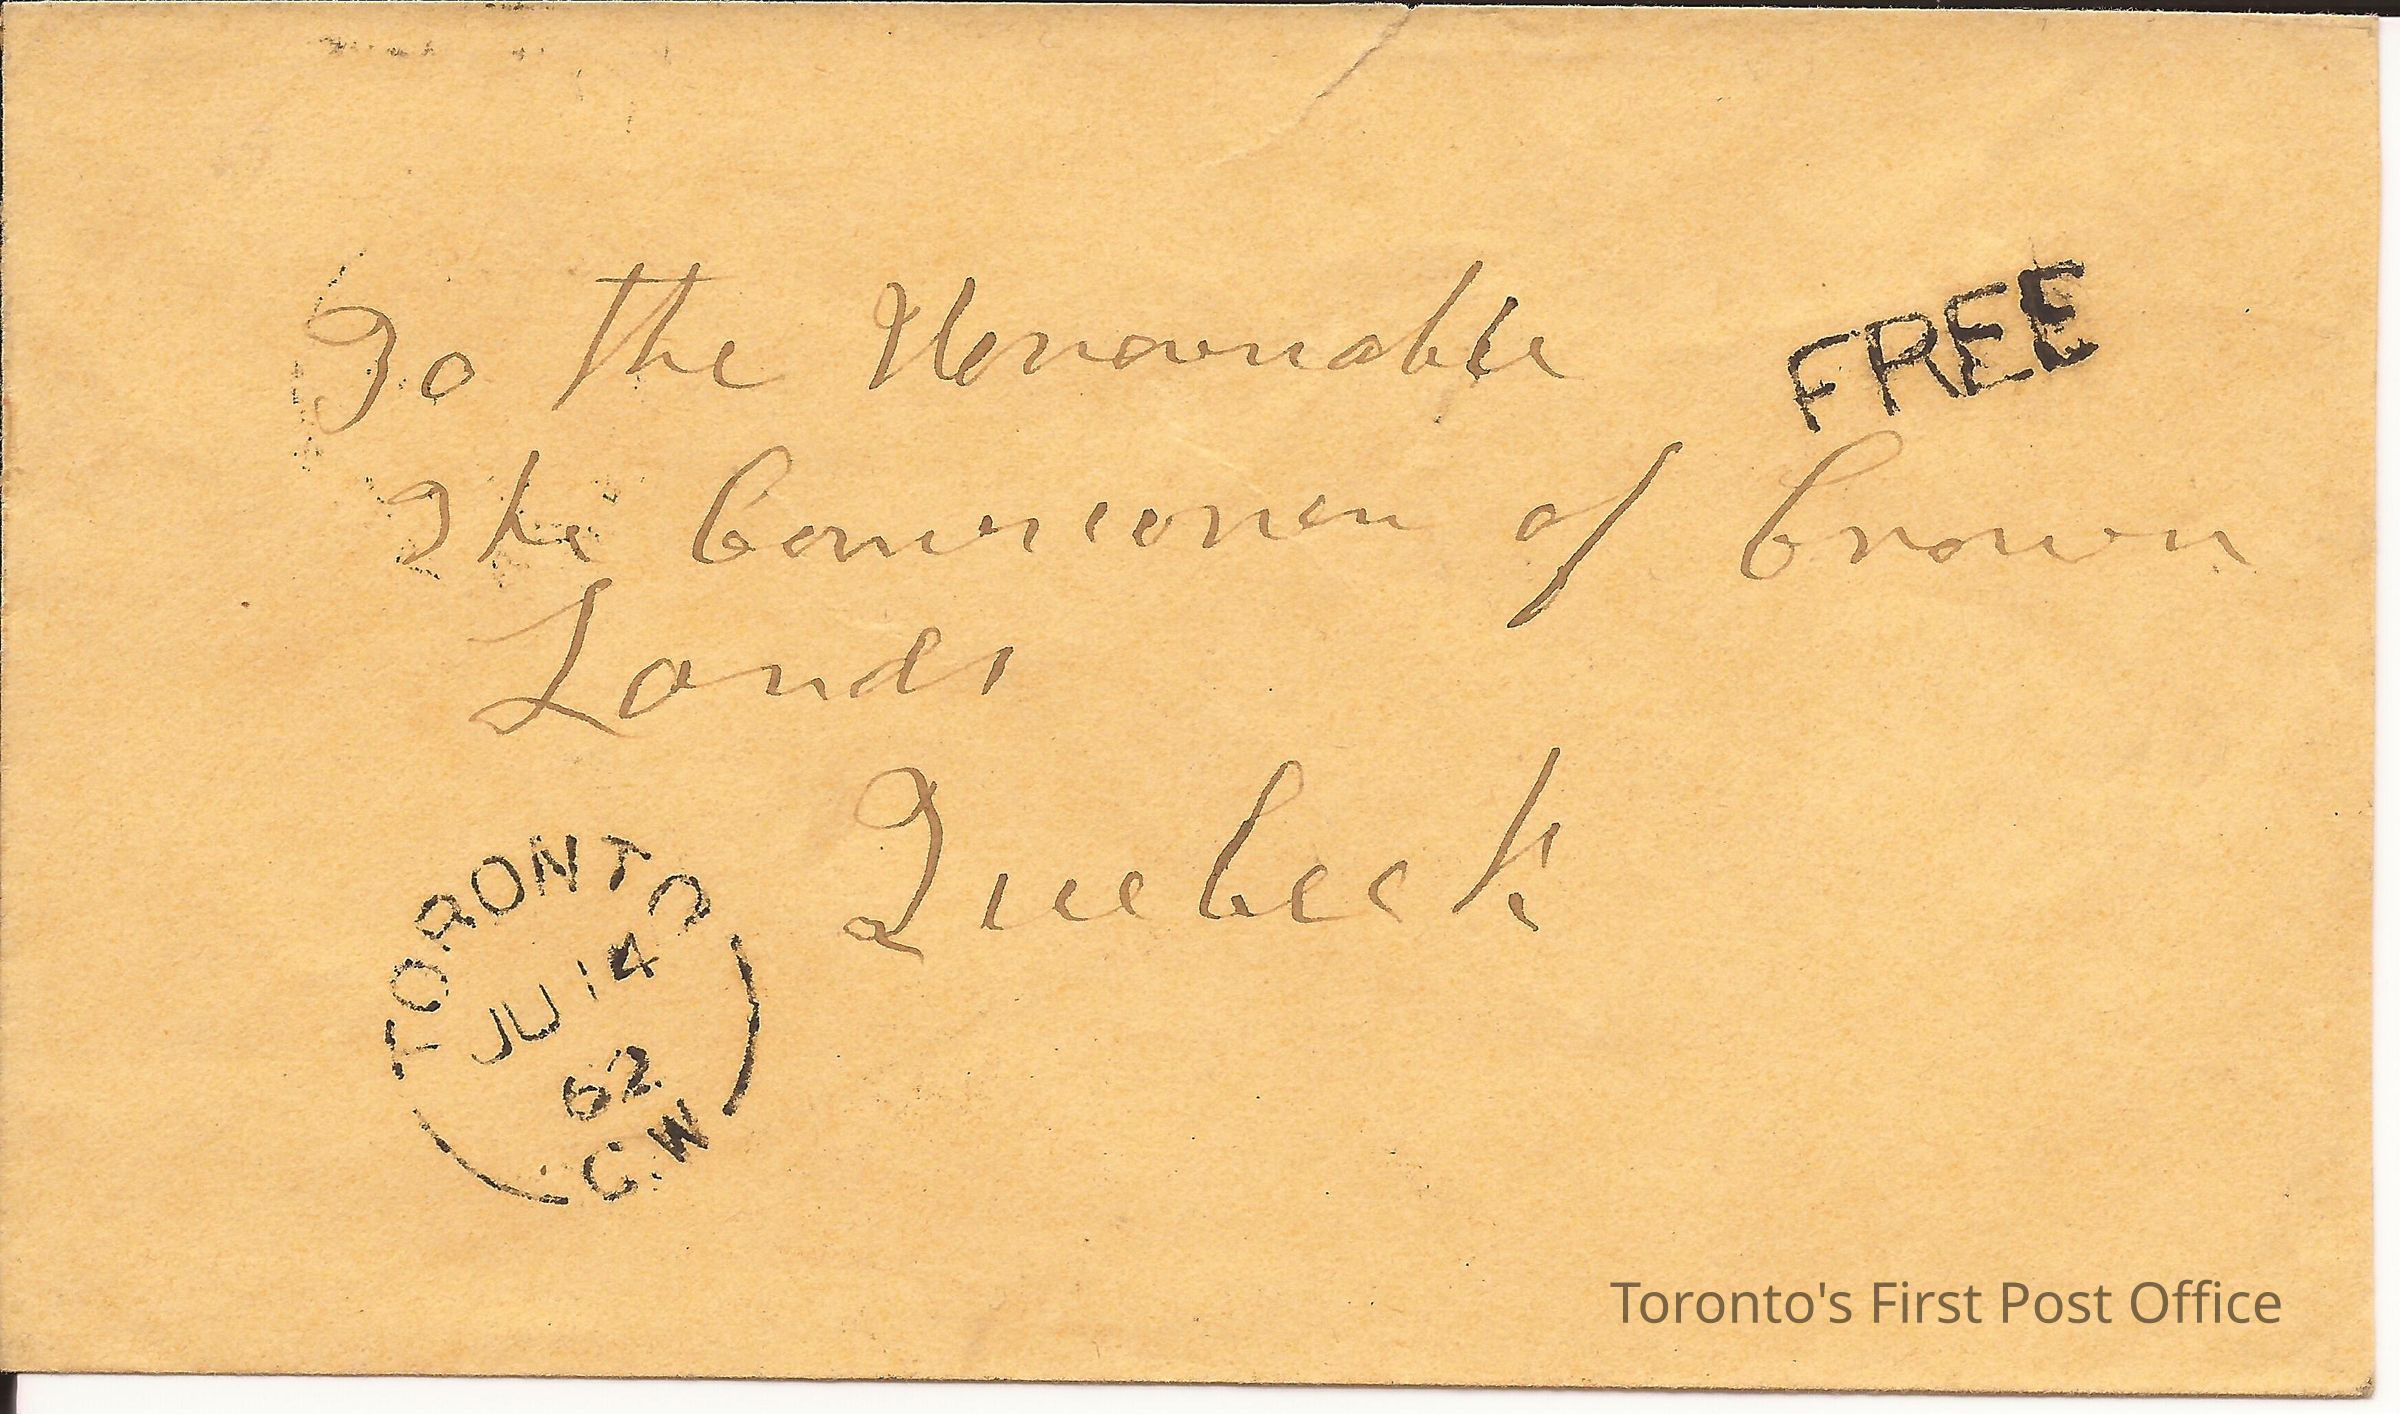 To the Honourable
FREE
The Commisioner of Crown
Lands
Quebeck
TORONTO
JU 14
62
C.W
Toronto's First Post Office